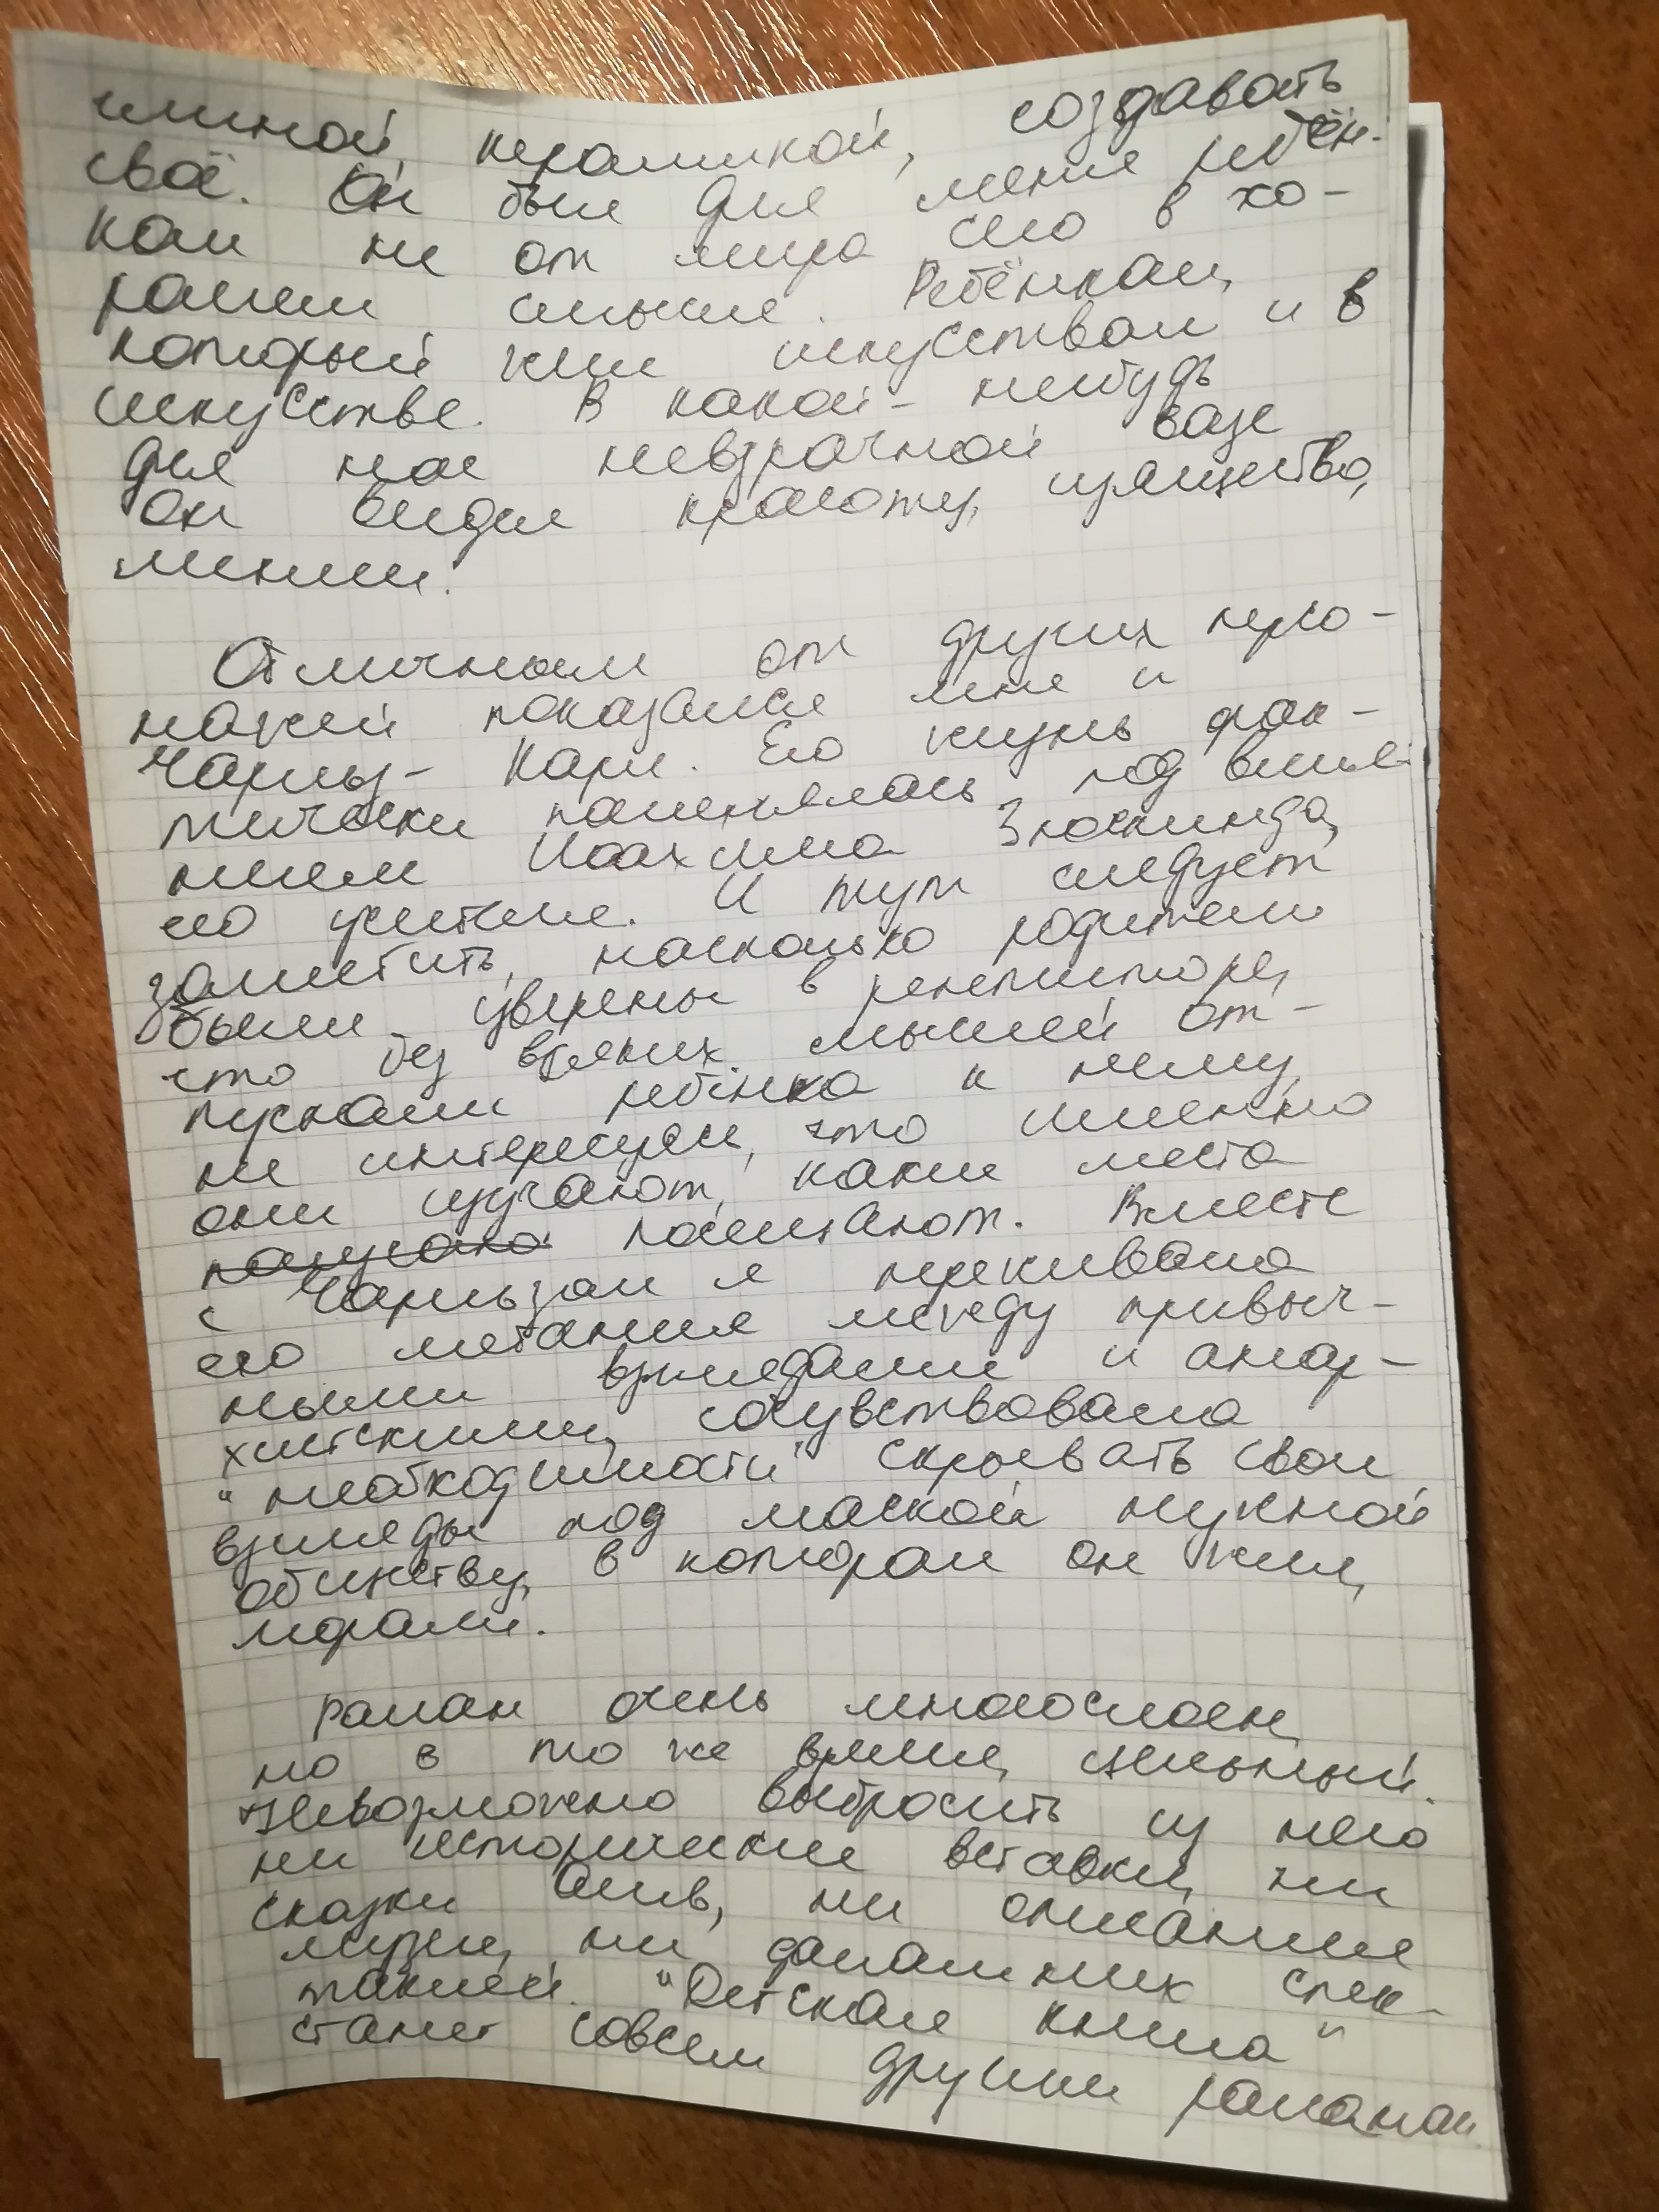 глиной, керамикой, создавать
своё. Он был для меня ребён-
ком не от мира сего в хо-
рошем смысле. Ребёнком,
который жил искусством и в
искусстве. В какой-нибудь
для нас невзрачной вазе
он видел красоту, изящество,
линии.
Отличным от других персо-
нажей показался мне и
Чарльз-Карл. Его жизнь фак-
тически поменялась под влия-
нием Иоахима Зюскинда,
его учителя. И тут следует
заметить, насколько родители
были уверены в репетиторе,
что без всяких мыслей от-
пускали ребёнка к нему,
не интересуясь, что именно
они изучают, какие места
посещают. Вместе
с Чарльзом я переживала
его метания между привыч-
ными взглядами и анар-
хистскими, сочувствовала
"необходимости" скрывать свои
взгляды под маской нужной
обществу, в котором он жил,
морали.
Роман очень многослоен,
но в то же время, цельный.
Невозможно выбросить из него
ни исторические вставки, ни
сказки Олив, ни описание
музея, ни домашних спек-
таклей. "Детская книга"
станет совсем другим романом.